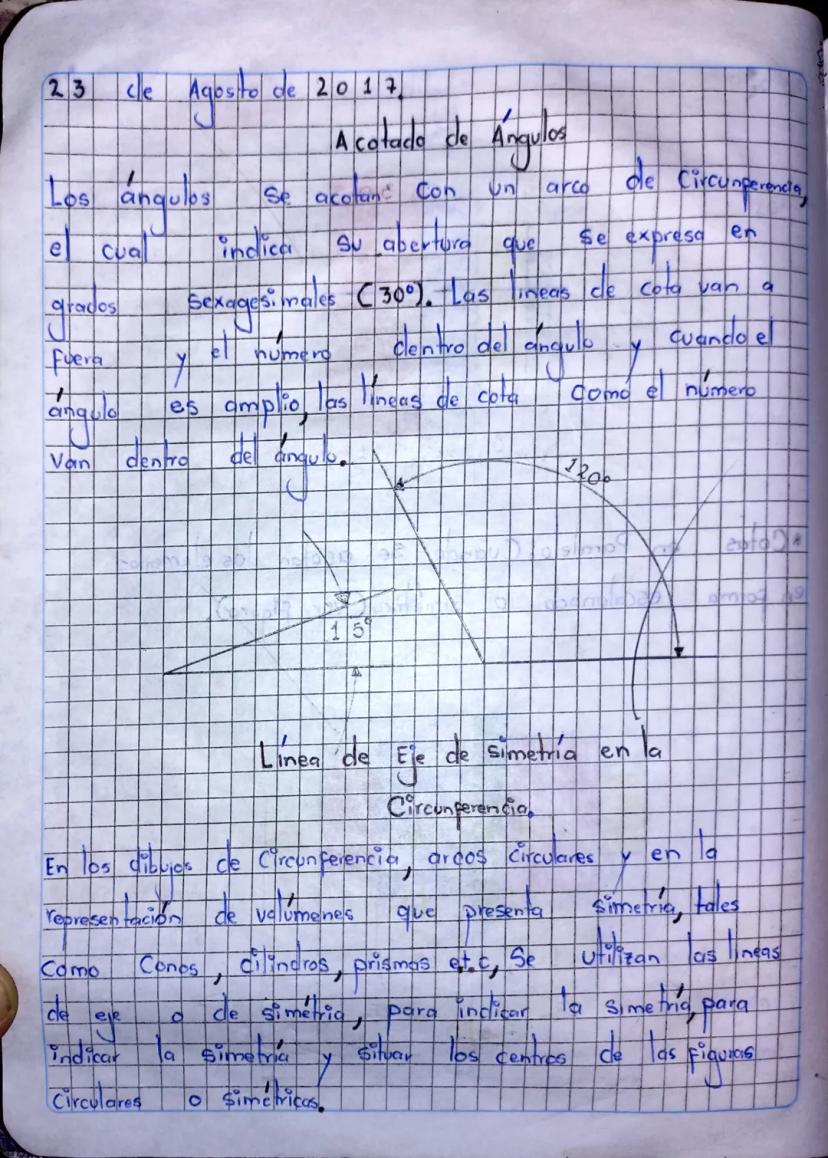 23 de Agosto de 2017.
Acotado de Ángulos
Los ángulos se acotan con un arco de Circunferencia,
el cual indica su abertura que se expresa en
grados sexagesimales (30°). Las líneas de cota van a
fuera y el número dentro del ángulo y cuando el
ángulo es amplio, las líneas de cota como el número
van dentro del ángulo.
120°
15°
Línea de Eje de simetría en la
Circunferencia.
En los dibujos de Circunferencia, arcos circulares y en la
representación de volúmenes que presenta simetría, tales
como Conos, cilindros, prismas et.c, Se utilizan las líneas
de eje o de simétria, para indicar la simetría, para
indicar la simetría y situar los centros de las figuras
Circulares o simétricas.